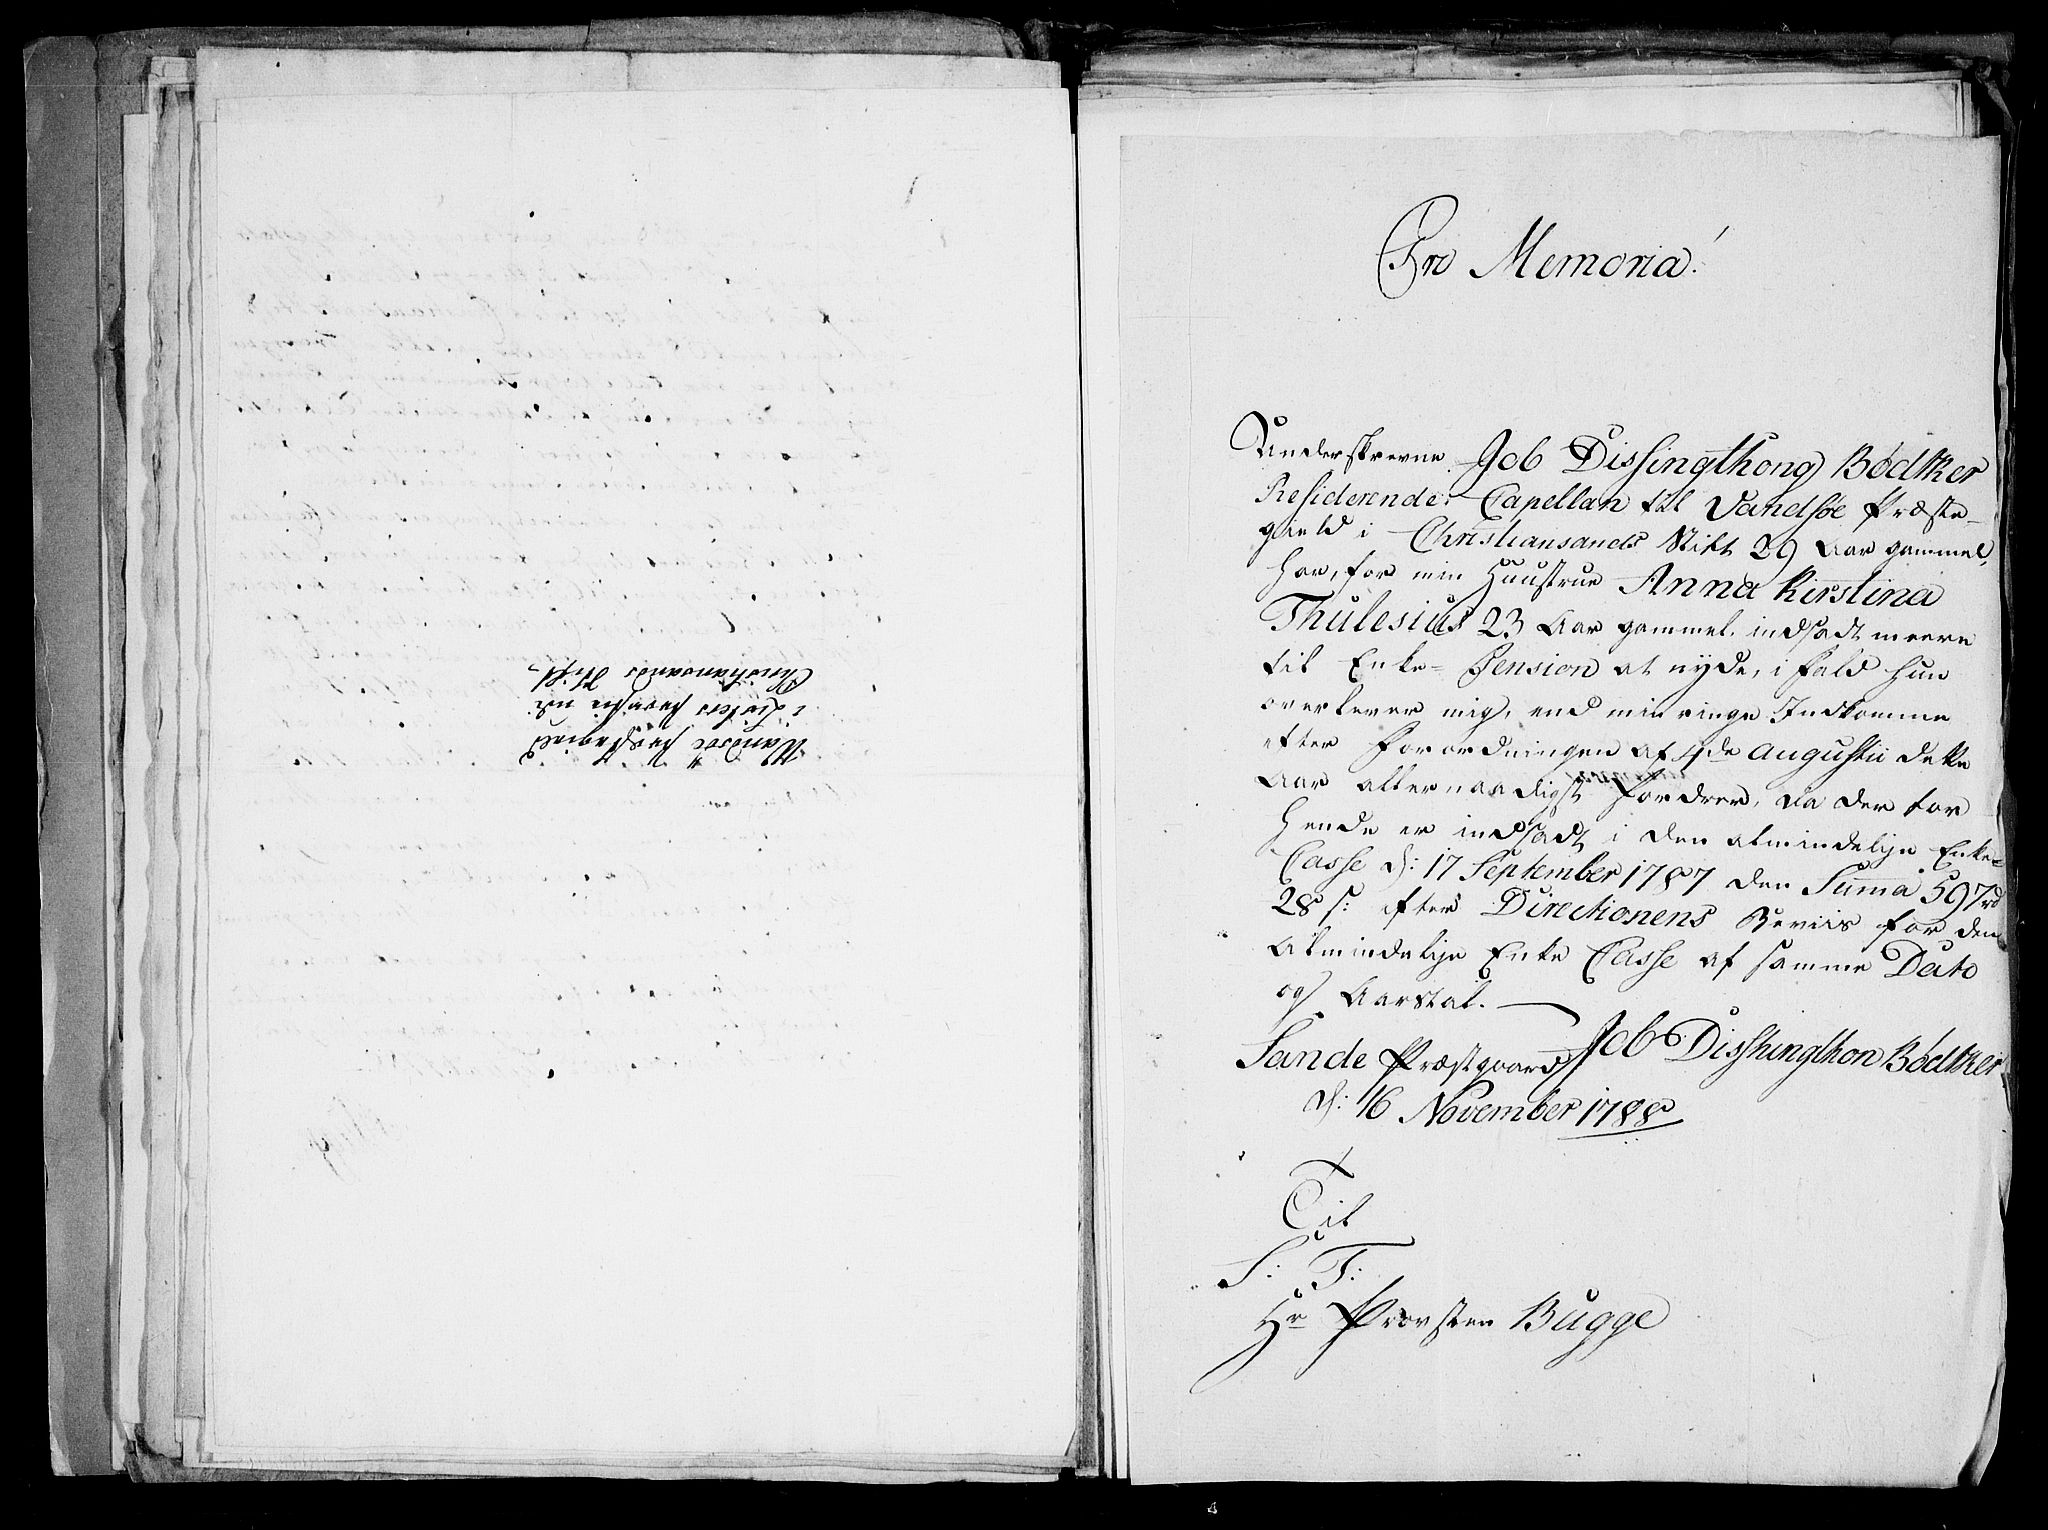 Wandsøe Præstegield
i Listers Provstie udi
Christiansands Stift,
Pro Memoria!
Underskrevne Job Dissingthong Bødtker
Residerende Capellan til Vandsøe Præste-
gield i Christiansands Stift 29 Aar gammel,
har, for min Huustrue Anna Kirstina
Thulesius 23 Aar gammel. indsadt meere
til Enke-Pension at nyde, i fald hun
overlever mig, end min ringe Indkomme
efter Forordningen af 4de Augustii dette
Aar allernaadigst fordrer, da der for
hende er indsadt i den almindelige Enke-
Casse d: 17 September 1787 den Suma 597 rd
28 s: efter Directionens Beviis for den
Almindelige Enke Casse af samme Dato
og Aarstal.
Sande Præstgaard Job Disshingthon Bødtker
d: 16 November 1788
Til
S: T:
Hr Provsten Bugge